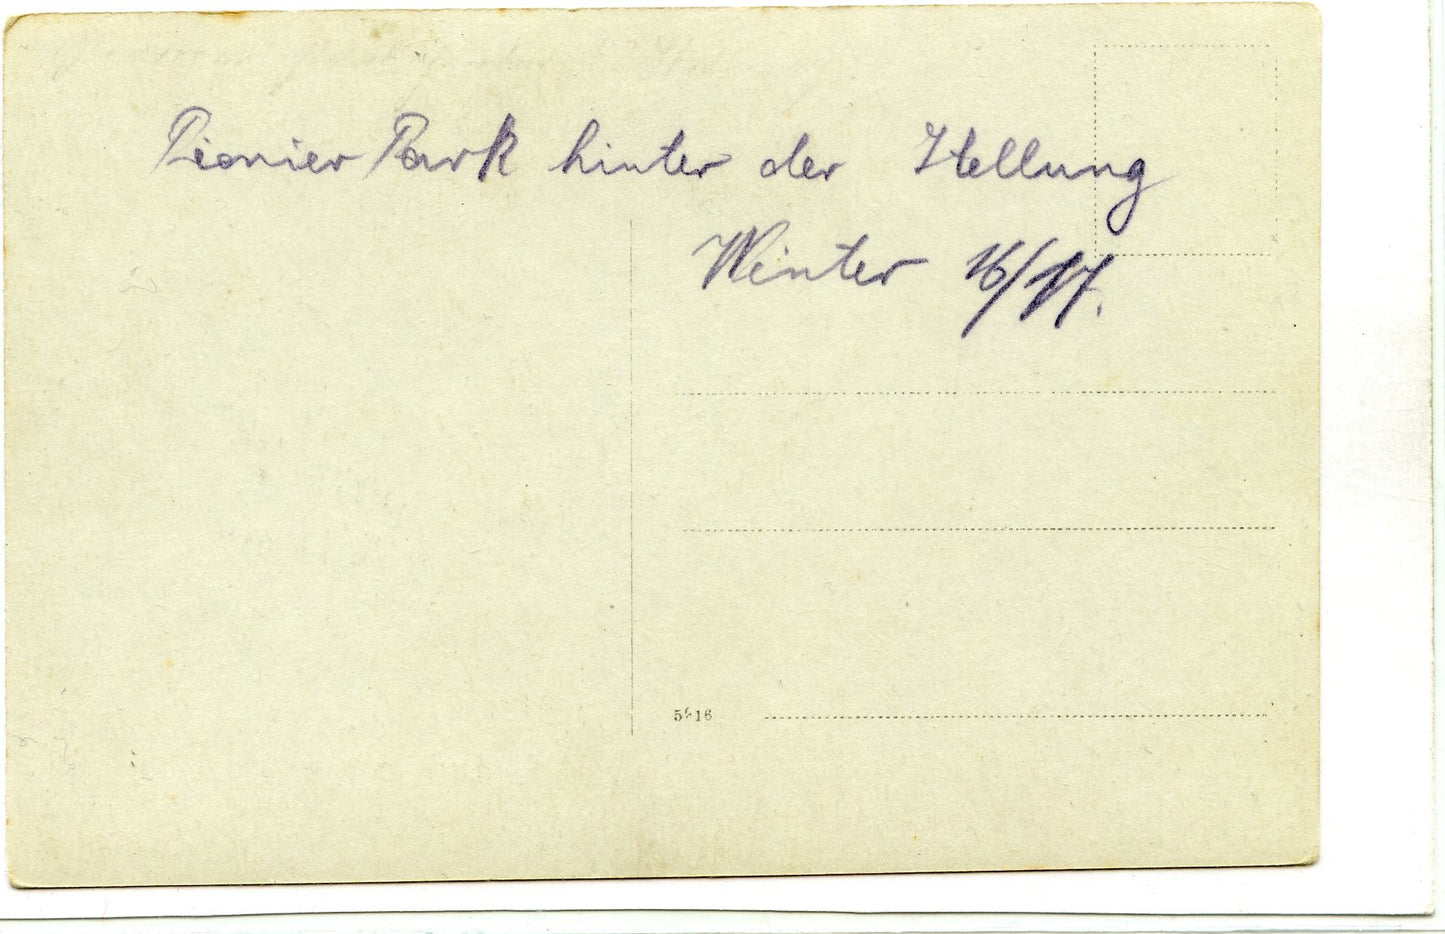 Pionier Park hinter der Stellung
Winter 16/17.
16